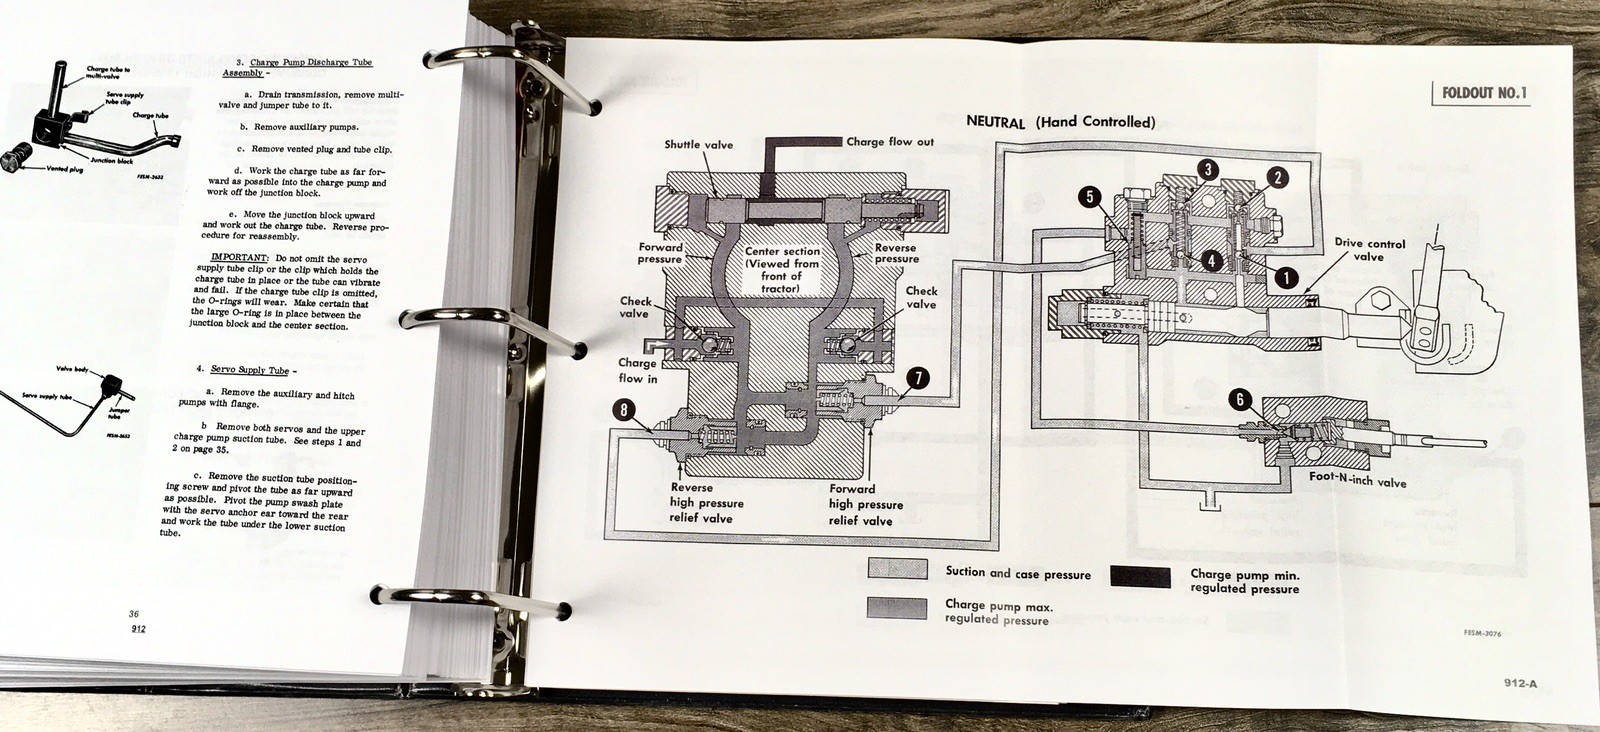 Charge tube to
multi-valve
Servo supply
tube clip
Charge tube
Junction block
Vented plug
FESM-3632
3. Charge Pump Discharge Tube
Assembly -
a. Drain transmission, remove multi-
valve and jumper tube to it.
b. Remove auxiliary pumps.
c. Remove vented plug and tube clip.
d. Work the charge tube as far for-
ward as possible into the charge pump and
work off the junction block.
e. Move the junction block upward
and work out the charge tube. Reverse pro-
cedure for reassembly.
IMPORTANT: Do not omit the servo
supply tube clip or the clip which holds the
charge tube in place or the tube can vibrate
and fail. If the charge tube clip is omitted,
the O-rings will wear. Make certain that
the large O-ring is in place between the
junction block and the center section.
Valve body
Servo supply tube
Jumper
tube
FESM-3633
4. Servo Supply Tube -
a. Remove the auxiliary and hitch
pumps with flange.
b Remove both servos and the upper
charge pump suction tube. See steps 1 and
2 on page 35.
c. Remove the suction tube position-
ing screw and pivot the tube as far upward
as possible. Pivot the pump swash plate
with the servo anchor ear toward the rear
and work the tube under the lower suction
tube.
36
912
FOLDOUT NO.1
NEUTRAL (Hand Controlled)
Shuttle valve
Charge flow out
Forward
pressure
Center section
(Viewed from
front of
tractor)
Reverse
pressure
Check
valve
Check
valve
Charge
flow in
7
8
Reverse
high pressure
relief valve
Forward
high pressure
relief valve
3
2
5
4
1
Drive control
valve
6
Foot-N-inch valve
Suction and case pressure
Charge pump max.
regulated pressure
Charge pump min.
regulated pressure
FESM-3076
912-A